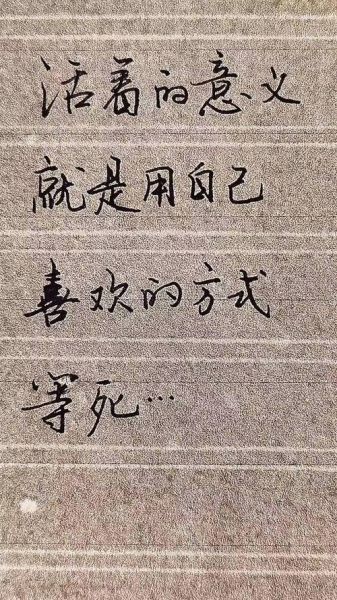 活着的意义
就是用自己
喜欢的方式
等死…